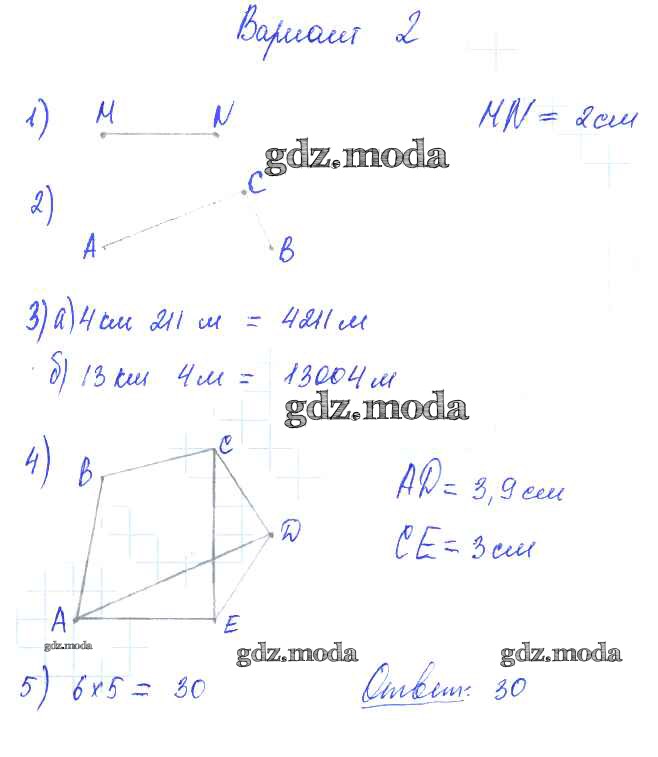 Вариант 2
1) M N MN = 2 см
gdz.moda
2) A C B
3) а) 4 км 211 м = 4211 м
б) 13 км 4 м = 13004 м
gdz.moda
4) B C D A E
AD = 3,9 см
CE = 3 см
gdz.moda
gdz.moda
gdz.moda
5) 6 × 5 = 30 Ответ: 30